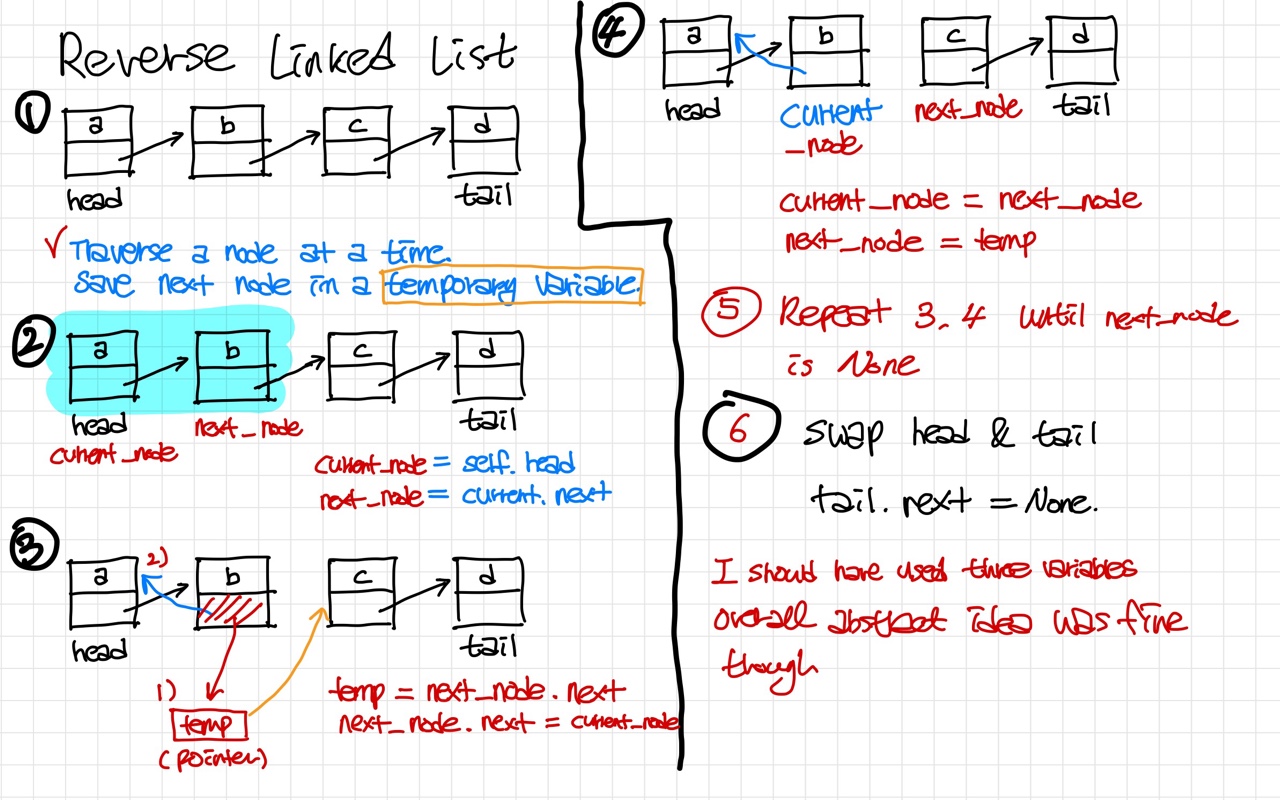 Reverse Linked List
1
a b c d
head tail
✓ Traverse a node at a time.
Save next node in a temporary variable.
2
a b c d
head tail
current_node next_node
current_node = self.head
next_node = current.next
3
2)
a b c d
head tail
1)
temp
(pointer)
temp = next_node.next
next_node.next = current_node
4
a b c d
head current next_node tail
_node
current_node = next_node
next_node = temp
5 Repeat 3, 4 until next_node
is None
6 swap head & tail
tail.next = None.
I should have used three variables
overall abstract idea was fine
though